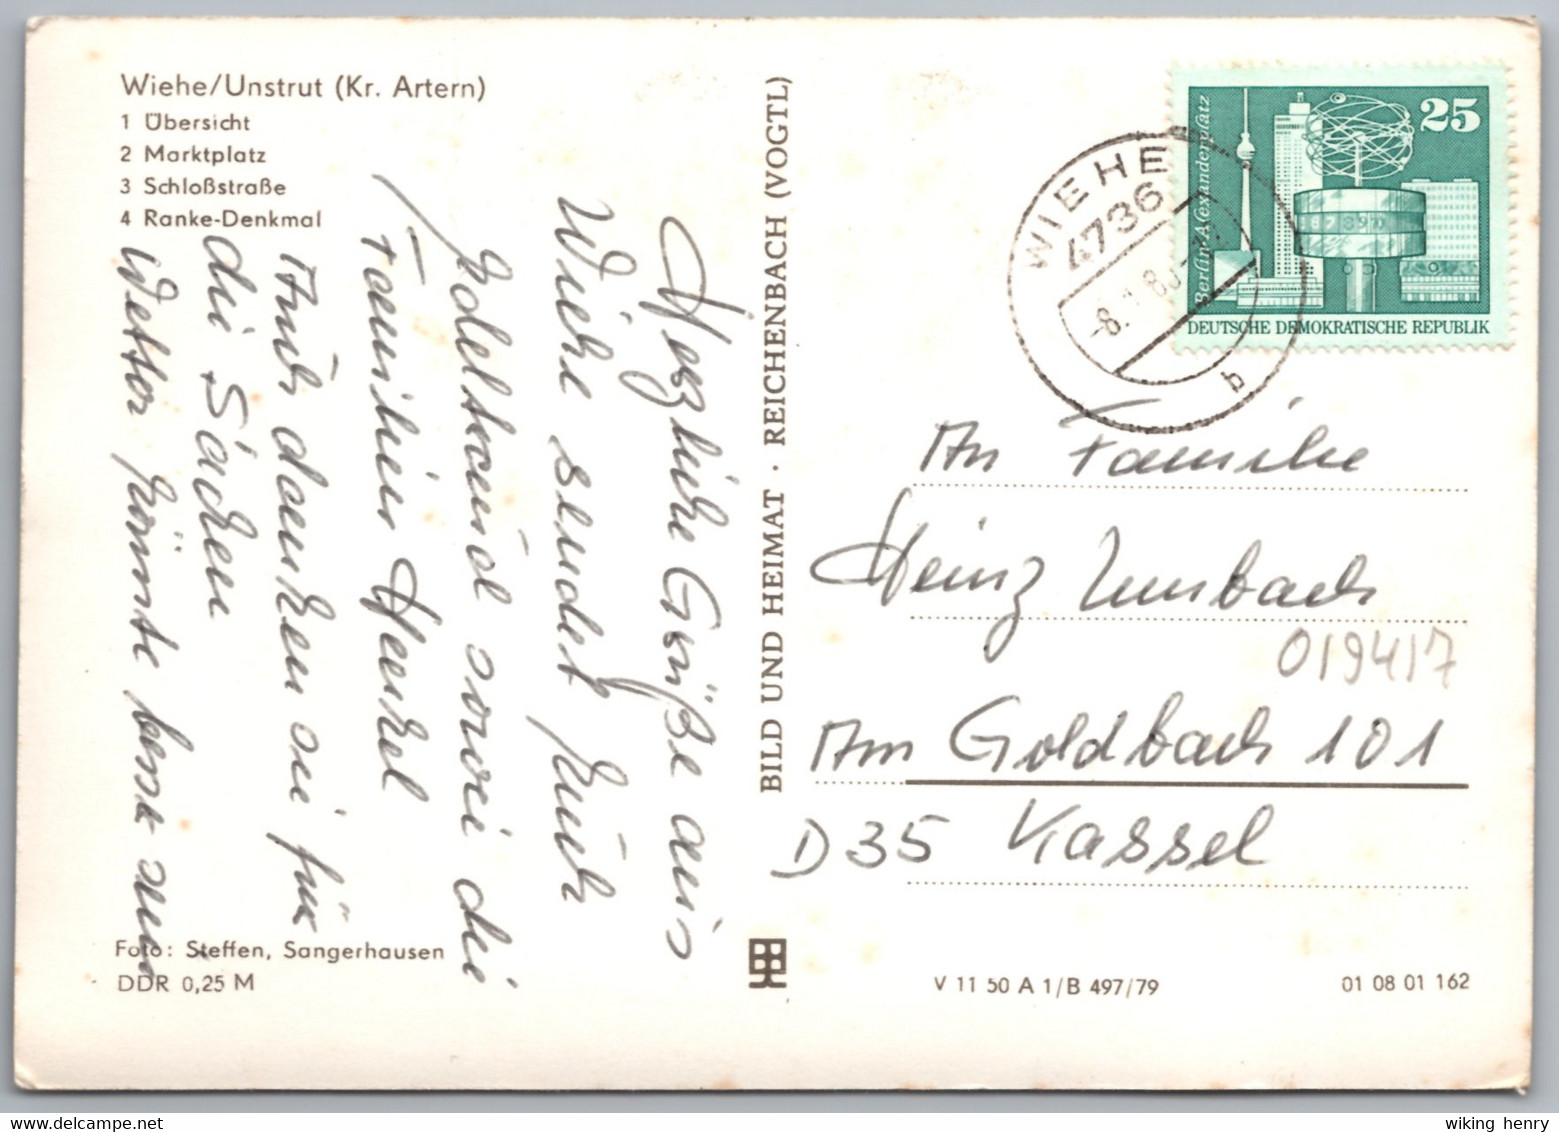 Wiehe/Unstrut (Kr. Artern)
1 Übersicht
2 Marktplatz
3 Schloßstraße
4 Ranke-Denkmal
Herzliche Grüße aus
Wiehe sendet Euch
Edeltraud sowei die
Familien Henkel
Auch danken sie für
die Sachen
Wetter könnte besse sein
Foto: Steffen, Sangerhausen
DDR 0,25 M
BILD UND HEIMAT · REICHENBACH (VOGTL)
25
Berlin-Alexanderplatz
DEUTSCHE DEMOKRATISCHE REPUBLIK
WIEHE
4736
b
An Familie
Heinz Umbach
019417
Am Goldbach 101
D 35 Kassel
V 11 50 A 1/B 497/79
01 08 01 162
wiking henry